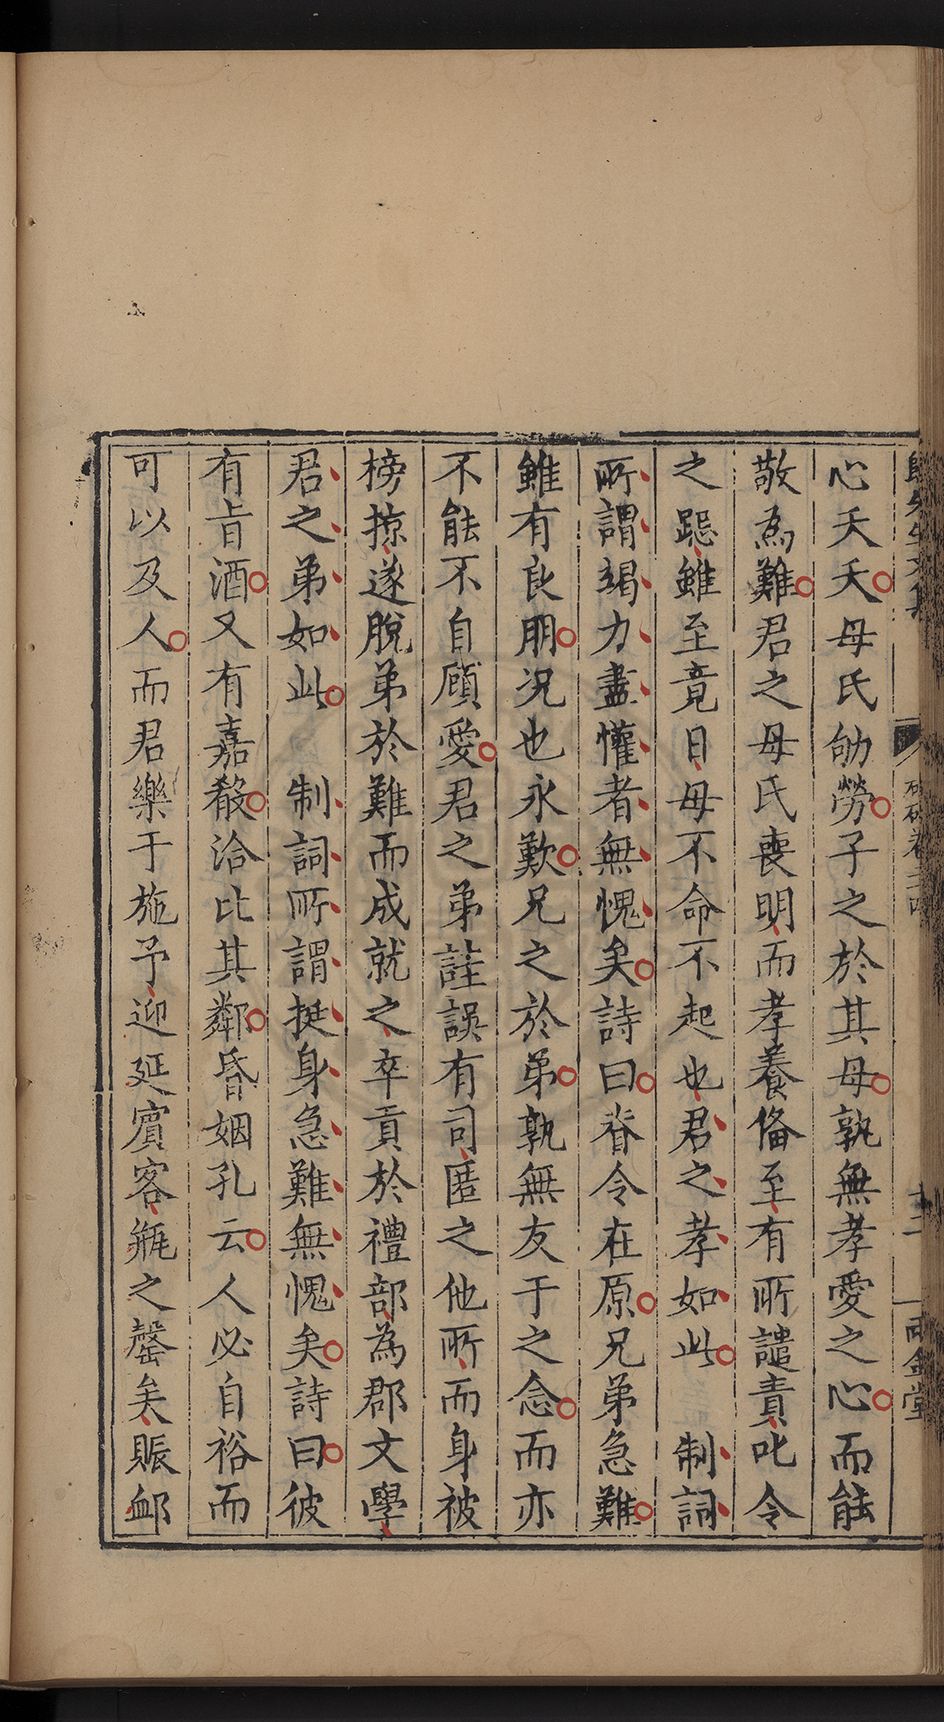 心夭夭母氏劬勞子之於其母孰無孝愛之心而能
敬為難君之母氏喪明而孝養俻至有所譴責叱令
之跽雖至竟日母不命不起也君之孝如此　制詞
所謂竭力盡懽者無愧矣詩曰脊令在原兄弟急難
雖有良朋況也永歎兄之於弟孰無友于之念而亦
不能不自顧愛君之弟詿誤有司匿之他所而身被
榜掠遂脫弟於難而成就之卒貢於禮部為郡文學
君之弟如此　制詞所謂挺身急難無愧矣詩曰彼
有旨酒又有嘉殽洽比其鄰昏姻孔云人必自裕而
可以及人而君樂于施予迎延賓客瓶之罄矣賑卹